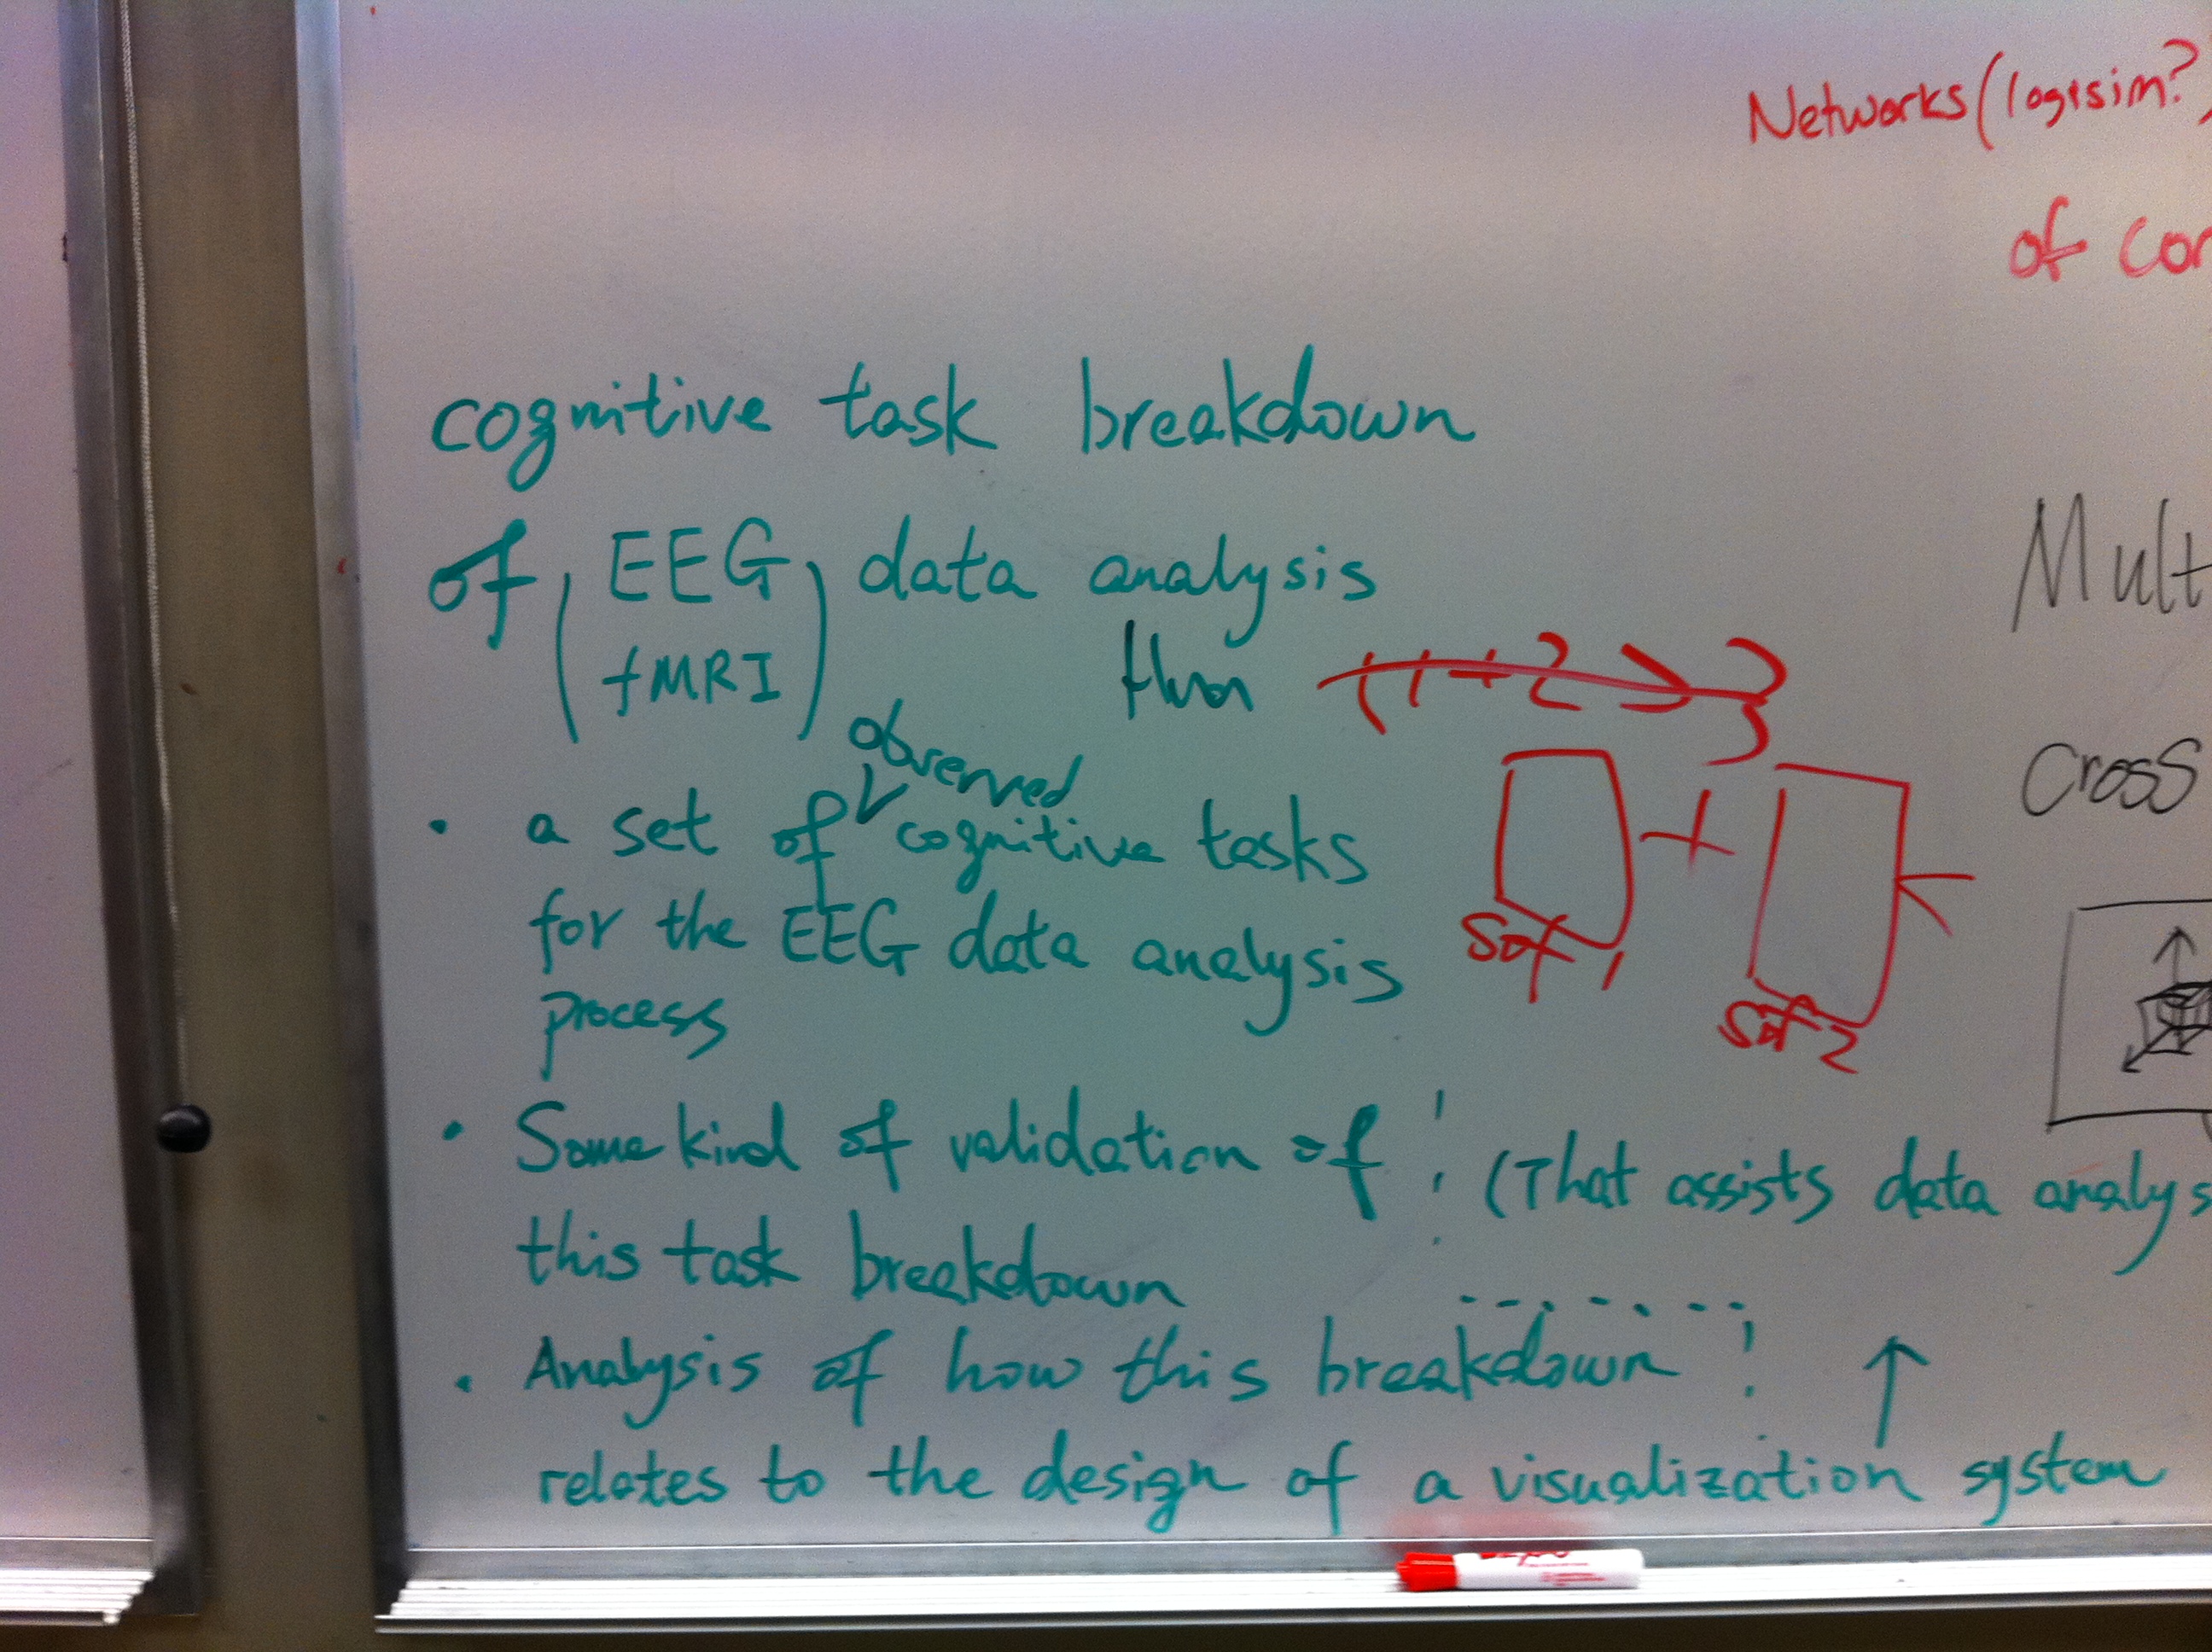 Networks (logisim?)
of Cor
cognitive task breakdown
of (EEG fMRI) data analysis
Mult
observed
Cross
• a set of cognitive tasks
for the EEG data analysis
process
+
Sof 1
Sof 2
• Some kind of validation of
(That assists data analys
this task breakdown
• Analysis of how this breakdown
relates to the design of a visualization system